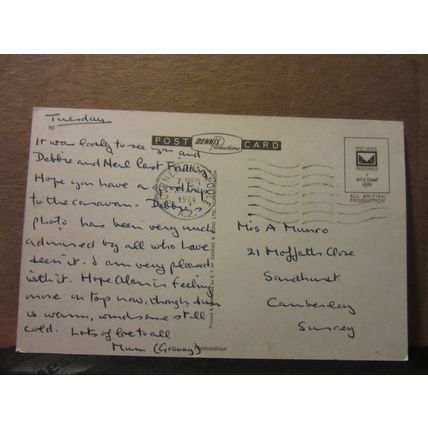 Tuesday
It was lovely to see you and
Debbie and Neil last Friday.
Hope you have a good trip
to the caravan. Debbie's
photo has been very much
admired by all who have
seen it. I am very pleased
with it. Hope Alan is feeling
more on top now, though sun
is warm, winds are still
cold. Lots of love to all
Mum (Granny)
POST
DENNIS
Productions
CARD
1974
POST OFFICE
PREFERRED
ALL BRITISH
PRODUCTION
Mrs A Munro
21 Moffatts Close
Sandhurst
Camberley
Surrey